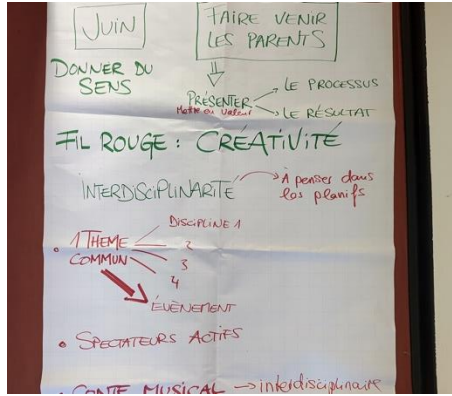 JUIN
FAIRE VENIR
LES PARENTS
DONNER DU
SENS
PRÉSENTER
Mettre en valeur
LE PROCESSUS
LE RÉSULTAT
FIL ROUGE : CRÉATIVITÉ
INTERDISCIPLINARITÉ
À penser dans
les planifs
• 1 THEME
COMMUN
DISCIPLINE 1
2
3
4
ÉVÈNEMENT
• SPECTATEURS ACTIFS
• CONTE MUSICAL → interdisciplinaire